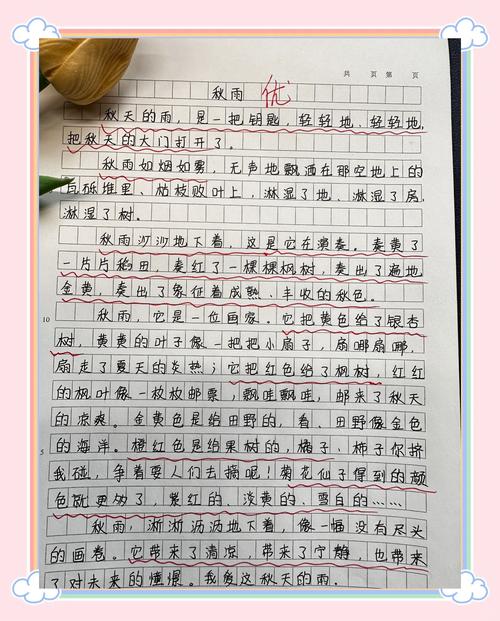 共 页 第 页
秋雨 优
秋天的雨，是一把钥匙，轻轻地、轻轻地，
把秋天的大门打开了。
秋雨如烟如雾，无声地飘洒在那空地上的
瓦砾堆里、枯枝败叶上，淋湿了地、淋湿了房，
淋湿了树。
秋雨沥沥地下着，这是它在演奏。奏黄了
一片片稻田，奏红了一棵棵枫树，奏出了遍地
金黄，奏出了象征着成熟、丰收的秋色。
10
秋雨，它是一位画家。它把黄色给了银杏
树，黄黄的叶子像一把把小扇子，扇哪扇哪，
扇走了夏天的炎热；它把红色给了枫树，红红
的枫叶像一枚枚邮票，飘哇飘哇，邮来了秋天
的凉爽。金黄色是给田野的，看、田野像金色
5
的海洋。橙红色是给果树的，橘子、柿子你挤
我碰，争着要人们去摘呢！菊花仙子得到的颜
色就更多了，紫红的、淡黄的、雪白的……
秋雨，淅淅沥沥地下着，像一幅没有尽头
的画卷。它带来了清凉，带来了宁静，也带来
了对未来的憧憬。我爱这秋天的雨.